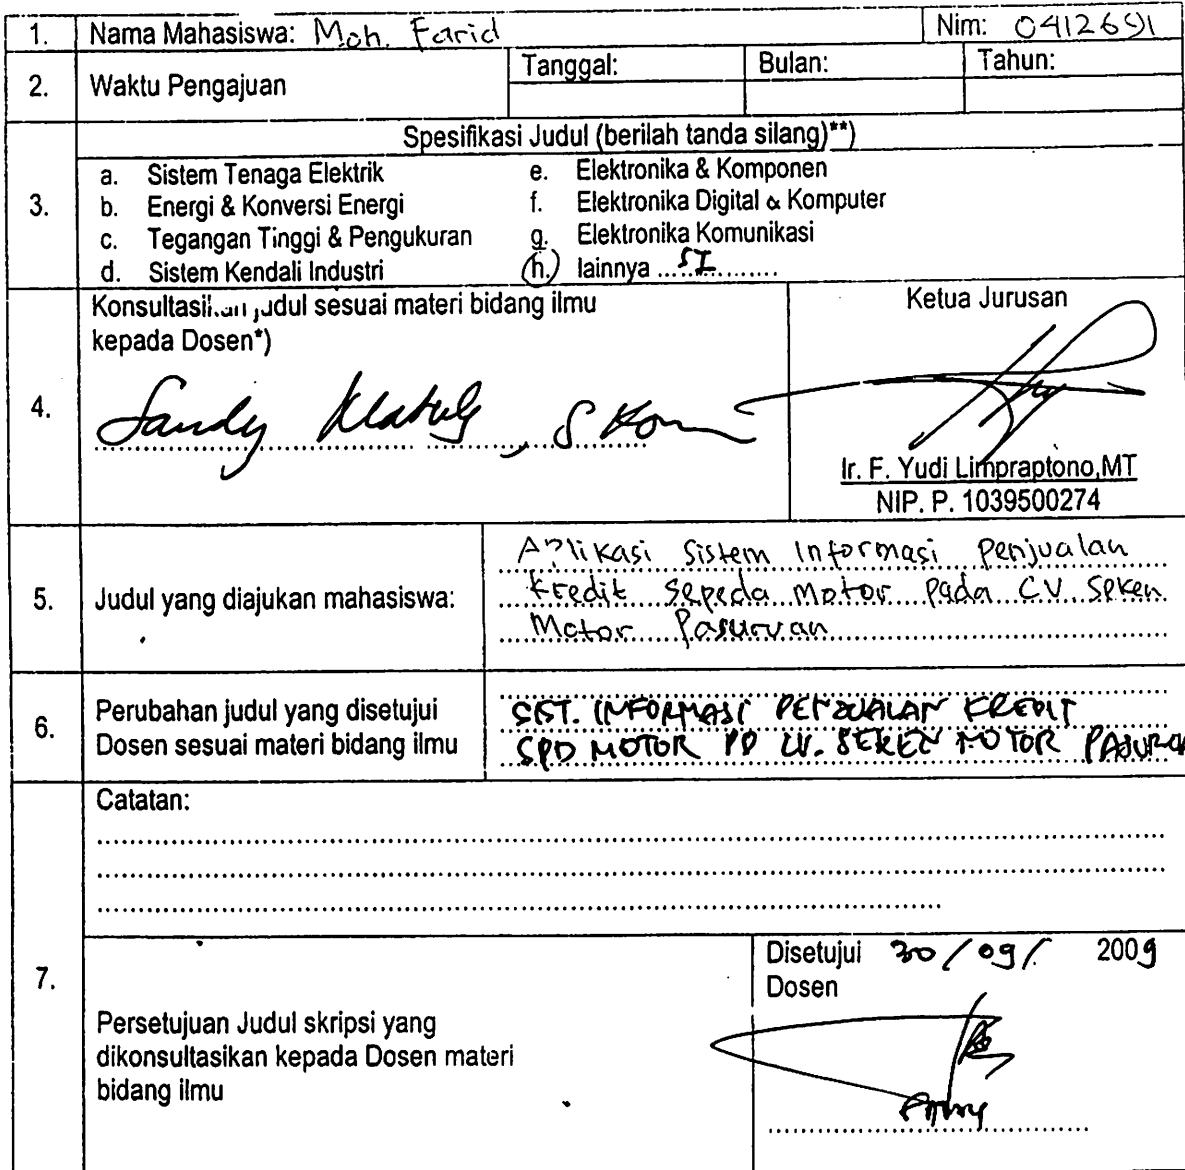 1. Nama Mahasiswa: Moh. Farid Nim: 0412651
2. Waktu Pengajuan Tanggal: Bulan: Tahun:
3. Spesifikasi Judul (berilah tanda silang)**)
a. Sistem Tenaga Elektrik e. Elektronika & Komponen
b. Energi & Konversi Energi f. Elektronika Digital & Komputer
c. Tegangan Tinggi & Pengukuran g. Elektronika Komunikasi
d. Sistem Kendali Industri h. lainnya ....SI.........
4. Konsultasikan judul sesuai materi bidang ilmu
kepada Dosen*)
Sandy , S Kom
Ketua Jurusan
Ir. F. Yudi Limpraptono,MT
NIP. P. 1039500274
5. Judul yang diajukan mahasiswa:
Aplikasi Sistem Informasi Penjualan
Kredit Sepeda Motor Pada CV. Seken
Motor Pasuruan
6. Perubahan judul yang disetujui
Dosen sesuai materi bidang ilmu
SIST. INFORMASI PENJUALAN KREDIT
SPD MOTOR PD CV. SEKEN MOTOR
7. Catatan:
Persetujuan Judul skripsi yang
dikonsultasikan kepada Dosen materi
bidang ilmu
Disetujui 30/09/ 2009
Dosen